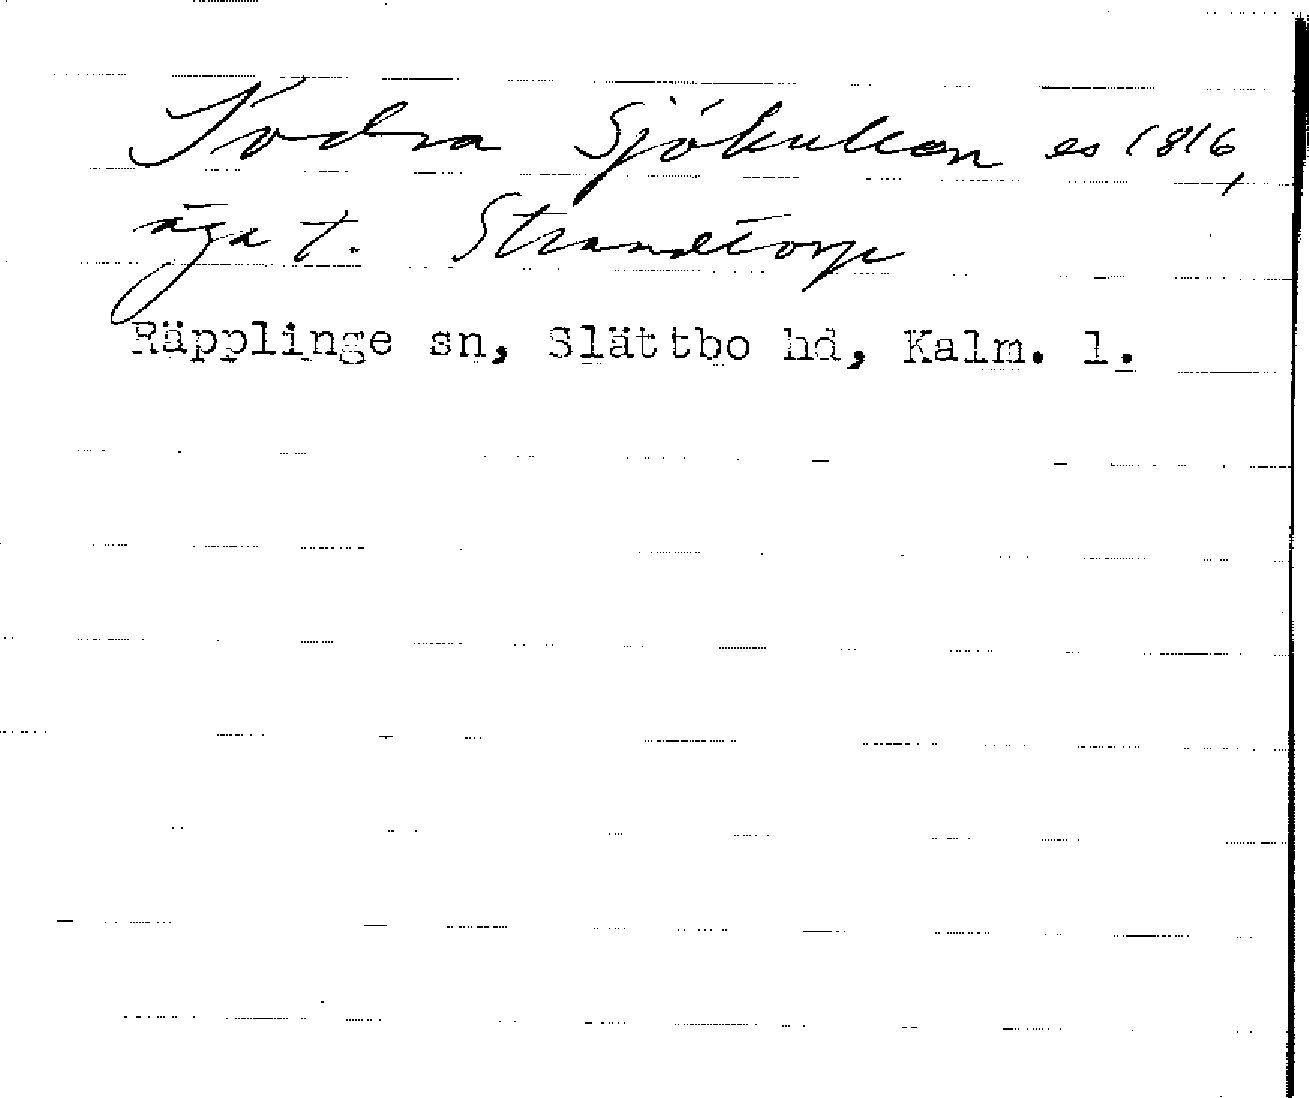 Södra Sjökullen es 1816,
äga t. Strandtorp
Räpplinge sn, Slättbo hd, Kalm. l.